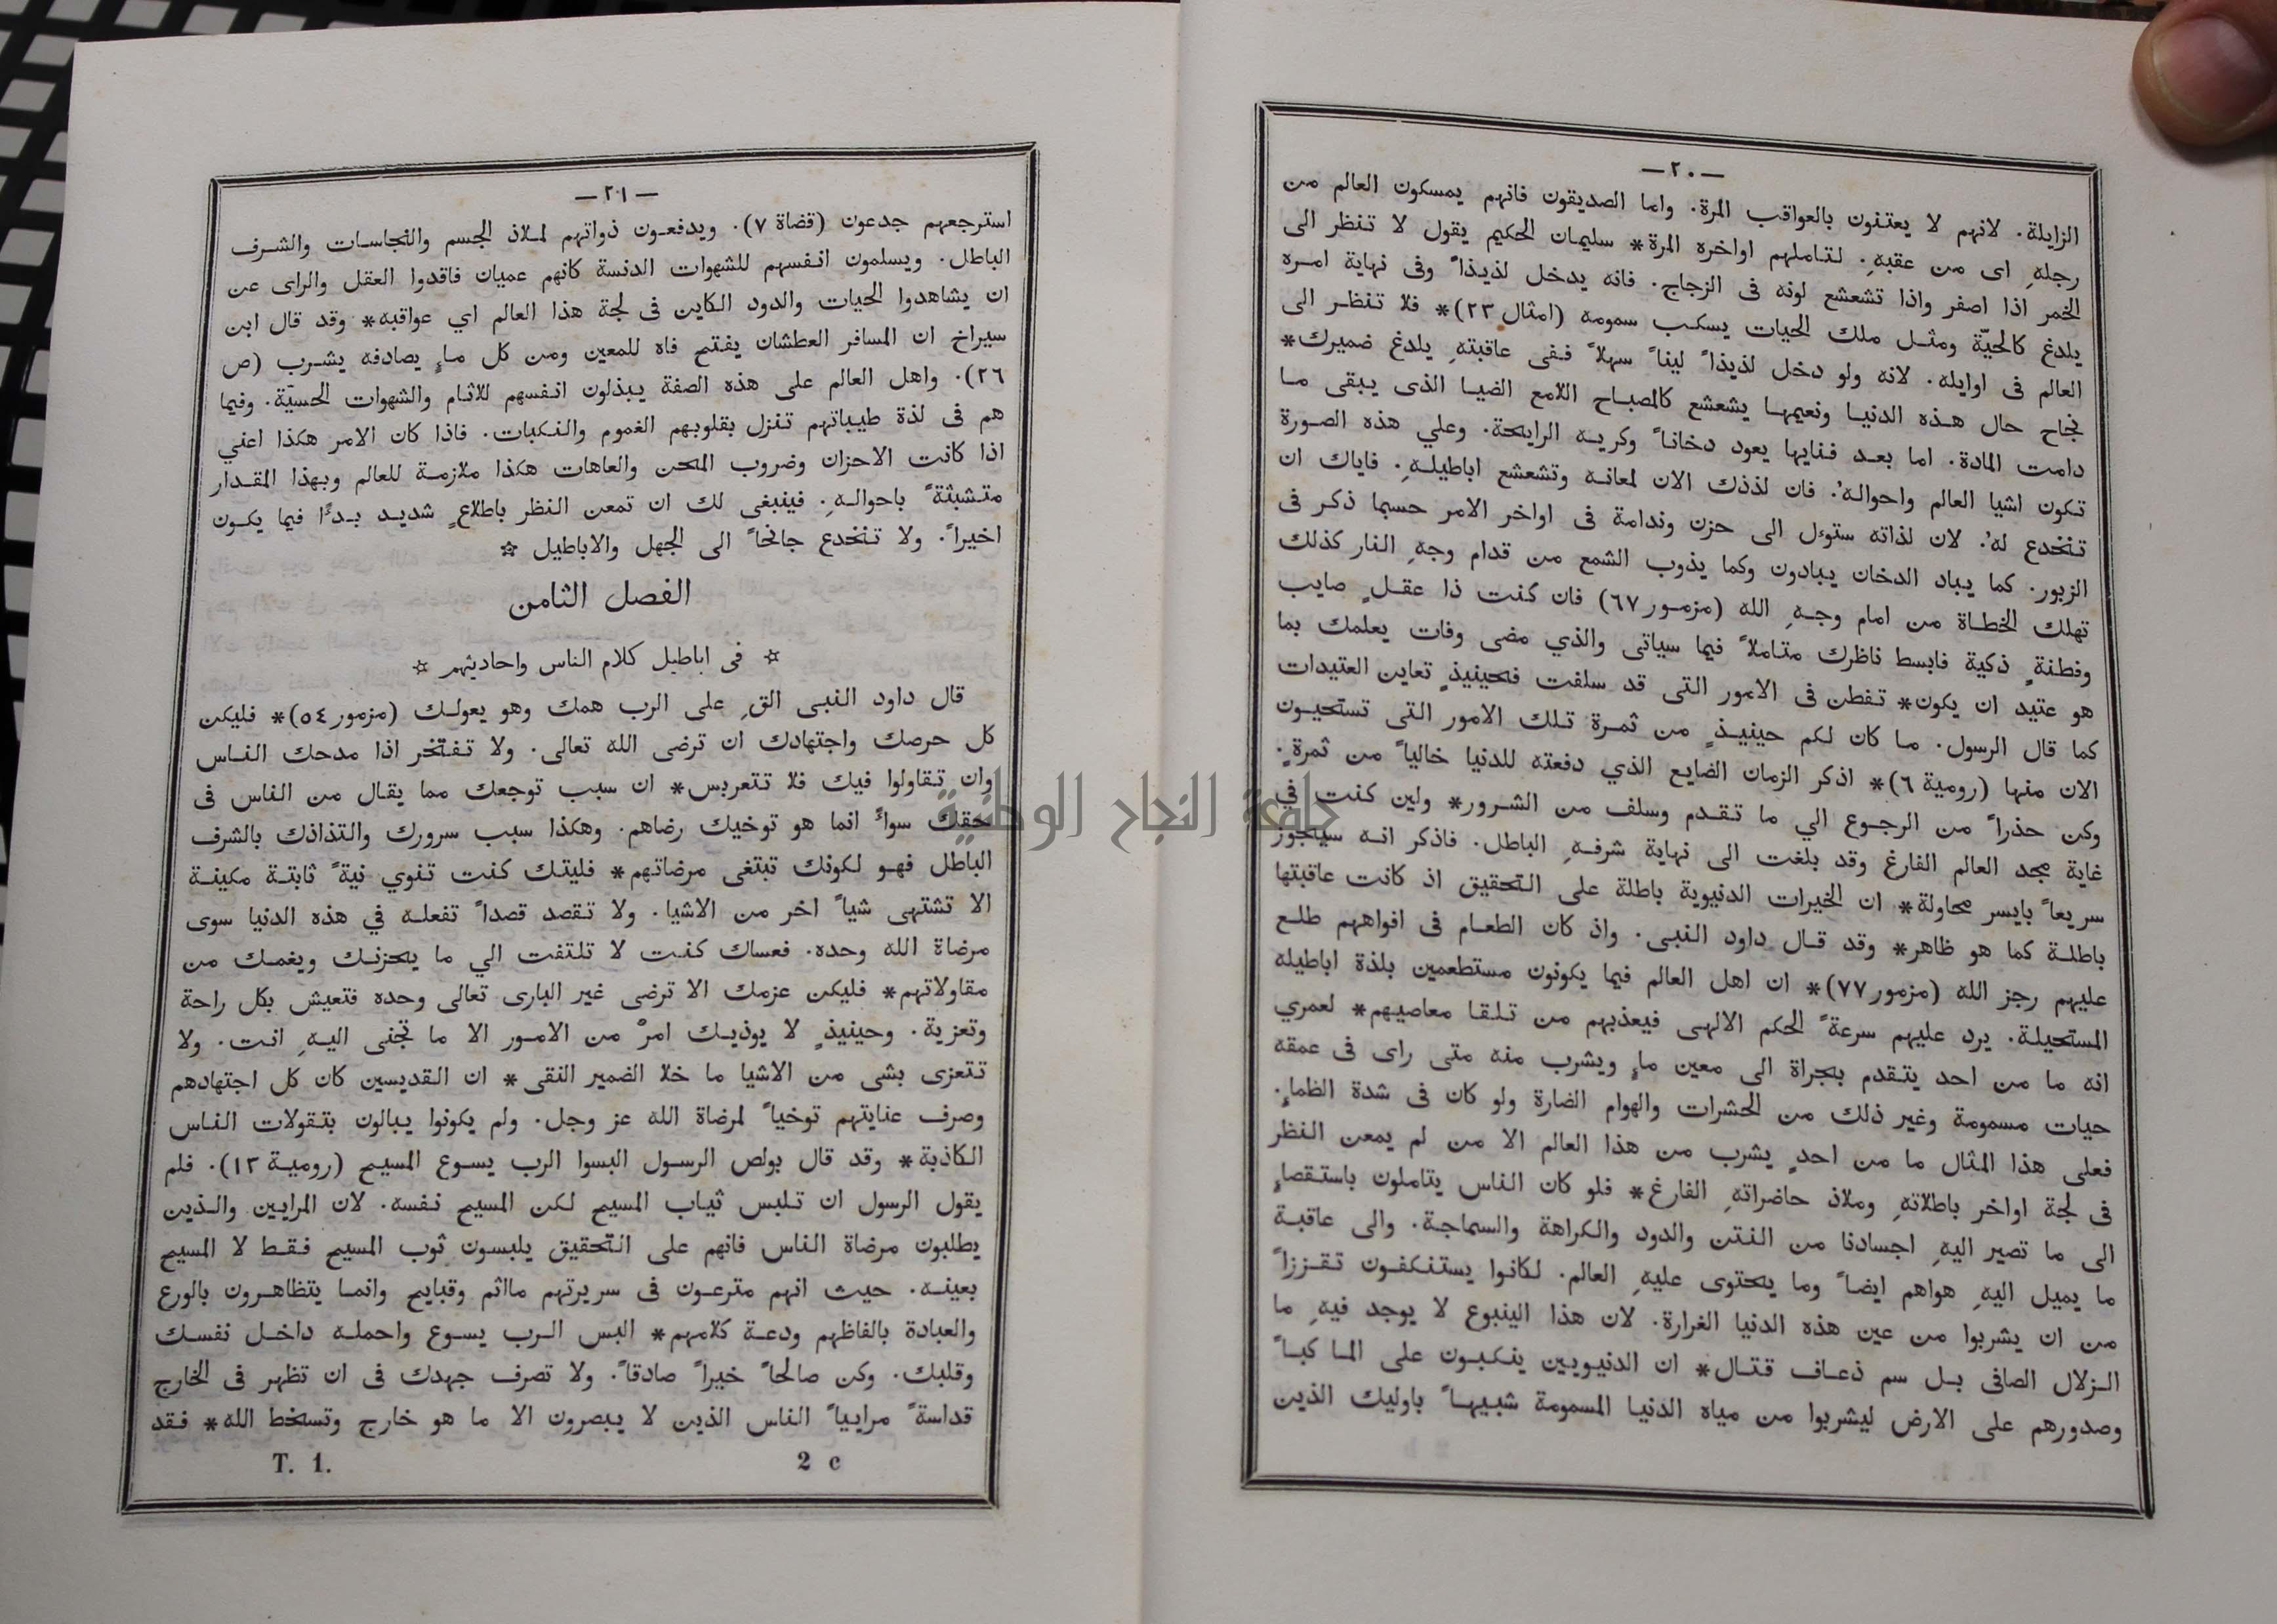 — ٢٠ —
الزايلة. لانهم لا يعتنون بالعواقب المرة. واما الصديقون فانهم يمسكون العالم من
رجلهِ اى من عقبهِ. لتاملهم اواخره المرة* سليمان الحكيم يقول لا تنظر الى
الخمر اذا اصفر واذا تشعشع لونه فى الزجاج. فانه يدخل لذيذاً وفى نهاية امره
يلدغ كالحيّة ومثل ملك الحيات يسكب سمومه (امثال ٢٣)* فلا تنظر الى
العالم فى اوايله. لانه ولو دخل لذيذاً ليناً سهلاً ففى عاقبتهِ يلدغ ضميرك*
نجاح حال هذه الدنيا ونعيمها يشعشع كالمصباح اللامع الضيا الذى يبقى ما
دامت المادة. اما بعد فنايها يعود دخاناً وكريه الرايحة. وعلي هذه الصورة
تكون اشيا العالم واحوالهُ. فان لذذك الان لمعانه وتشعشع اباطيلهِ. فاياك ان
تنخدع لهُ. لان لذاته ستوءل الى حزن وندامة فى اواخر الامر حسبما ذكر فى
الزبور. كما يباد الدخان يبادون وكما يذوب الشمع من قدام وجهِ النار كذلك
تهلك الخطاة من امام وجهِ الله (مزمور ٦٧) فان كنت ذا عقلٍ صايب
وفطنةٍ ذكية فابسط ناظرك متاملاً فيما سياتى والذي مضى وفات يعلمك بما
هو عتيد ان يكون* تفطن فى الامور التى قد سلفت فحينيذٍ تعاين العتيدات
كما قال الرسول. ما كان لكم حينيذٍ من ثمرة تلك الامور التى تستحيون
الان منها (رومية ٦)* اذكر الزمان الضايع الذي دفعته للدنيا خالياً من ثمرةٍ.
وكن حذراً من الرجوع الي ما تقدم وسلف من الشرور* ولين كنت في
غاية مجد العالم الفارغ وقد بلغت الى نهاية شرفهِ الباطل. فاذكر انه سيجوز
سريعاً بايسر محاولة* ان الخيرات الدنيوية باطلة على التحقيق اذ كانت عاقبتها
باطلة كما هو ظاهر* وقد قال داود النبى. واذ كان الطعام فى افواههم طلع
عليهم رجز الله (مزمور ٧٧)* ان اهل العالم فيما يكونون مستطعمين بلذة اباطيله
المستحيلة. يرد عليهم سرعةً الحكم الالهى فيعذبهم من تلقا معاصيهم* لعمري
انه ما من احد يتقدم بجراة الى معين ماءٍ ويشرب منه متى راى فى عمقه
حيات مسمومة وغير ذلك من الحشرات والهوام الضارة ولو كان فى شدة الظماءِ.
فعلى هذا المثال ما من احدٍ يشرب من هذا العالم الا من لم يمعن النظر
فى لجة اواخر باطلاتهِ وملاذ حاضراتهِ الفارغ* فلو كان الناس يتاملون باستقصاءٍ
الى ما تصير اليهِ اجسادنا من النتن والدود والكراهة والسماجة. والى عاقبة
ما يميل اليهِ هواهم ايضاً وما يحتوى عليهِ العالم. لكانوا يستنكفون تقززاً
من ان يشربوا من عين هذه الدنيا الغرارة. لان هذا الينبوع لا يوجد فيهِ ما
الزلال الصافى بل سم ذعاف قتال* ان الدنيويين ينكبون على الما كباً
وصدورهم على الارض ليشربوا من مياه الدنيا المسمومة شبيهاً باوليك الذين
— ٢١ —
استرجعهم جدعون (قضاة ٧). ويدفعون ذواتهم لملاذ الجسم والنجاسات والشرف
الباطل. ويسلمون انفسهم للشهوات الدنسة كانهم عميان فاقدوا العقل والراى عن
ان يشاهدوا الحيات والدود الكاين فى لجة هذا العالم اي عواقبه* وقد قال ابن
سيراخ ان المسافر العطشان يفتح فاه للمعين ومن كل ماءٍ يصادفه يشرب (ص
٢٦). واهل العالم على هذه الصفة يبذلون انفسهم للاثام والشهوات الحسيّة. وفيما
هم فى لذة طيباتهم تنزل بقلوبهم الغموم والنكبات. فاذا كان الامر هكذا اعني
اذا كانت الاحزان وضروب المحن والعاهات هكذا ملازمة للعالم وبهذا المقدار
متشبثةً باحوالهِ. فينبغى لك ان تمعن النظر باطلاعٍ شديد بدءًا فيما يكون
اخيراً. ولا تنخدع جانحاً الى الجهل والاباطيل ☆
الفصل الثامن
☆ فى اباطيل كلام الناس واحاديثهم ☆
قال داود النبى القِ على الرب همك وهو يعولك (مزمور ٥٤)* فليكن
كل حرصك واجتهادك ان ترضى الله تعالى. ولا تفتخر اذا مدحك الناس
وان تقاولوا فيك فلا تتعربس* ان سبب توجعك مما يقال من الناس فى
حقك سواءً انما هو توخيك رضاهم. وهكذا سبب سرورك والتذاذك بالشرف
الباطل فهو لكونك تبتغى مرضاتهم* فليتك كنت تنوي نيةً ثابتة مكينة
الا تشتهى شياً اخر من الاشيا. ولا تقصد قصداً تفعله في هذه الدنيا سوى
مرضاة الله وحده. فعساك كنت لا تلتفت الي ما يحزنك ويغمك من
مقاولاتهم* فليكن عزمك الا ترضى غير البارى تعالى وحده فتعيش بكل راحة
وتعزية. وحينيذٍ لا يوذيك امرٌ من الامور الا ما تجنى اليهِ انت. ولا
تتعزى بشى من الاشيا ما خلا الضمير النقى* ان القديسين كان كل اجتهادهم
وصرف عنايتهم توخياً لمرضاة الله عز وجل. ولم يكونوا يبالون بتقولات الناس
الكاذبة* وقد قال بولص الرسول البسوا الرب يسوع المسيح (رومية ١٣). فلم
يقول الرسول ان تلبس ثياب المسيح لكن المسيح نفسه. لان المرايين والذين
يطلبون مرضاة الناس فانهم على التحقيق يلبسون ثوب المسيح فقط لا المسيح
بعينه. حيث انهم مترعون فى سريرتهم مااثم وقبايح وانما يتظاهرون بالورع
والعبادة بالفاظهم ودعة كلامهم* البس الرب يسوع واحمله داخل نفسك
وقلبك. وكن صالحاً خيراً صادقاً. ولا تصرف جهدك فى ان تظهر فى الخارج
قداسةً مرايياً الناس الذين لا يبصرون الا ما هو خارج وتسخط الله* فقد
T. 1. 2 c
جامعة النجاح الوطنية